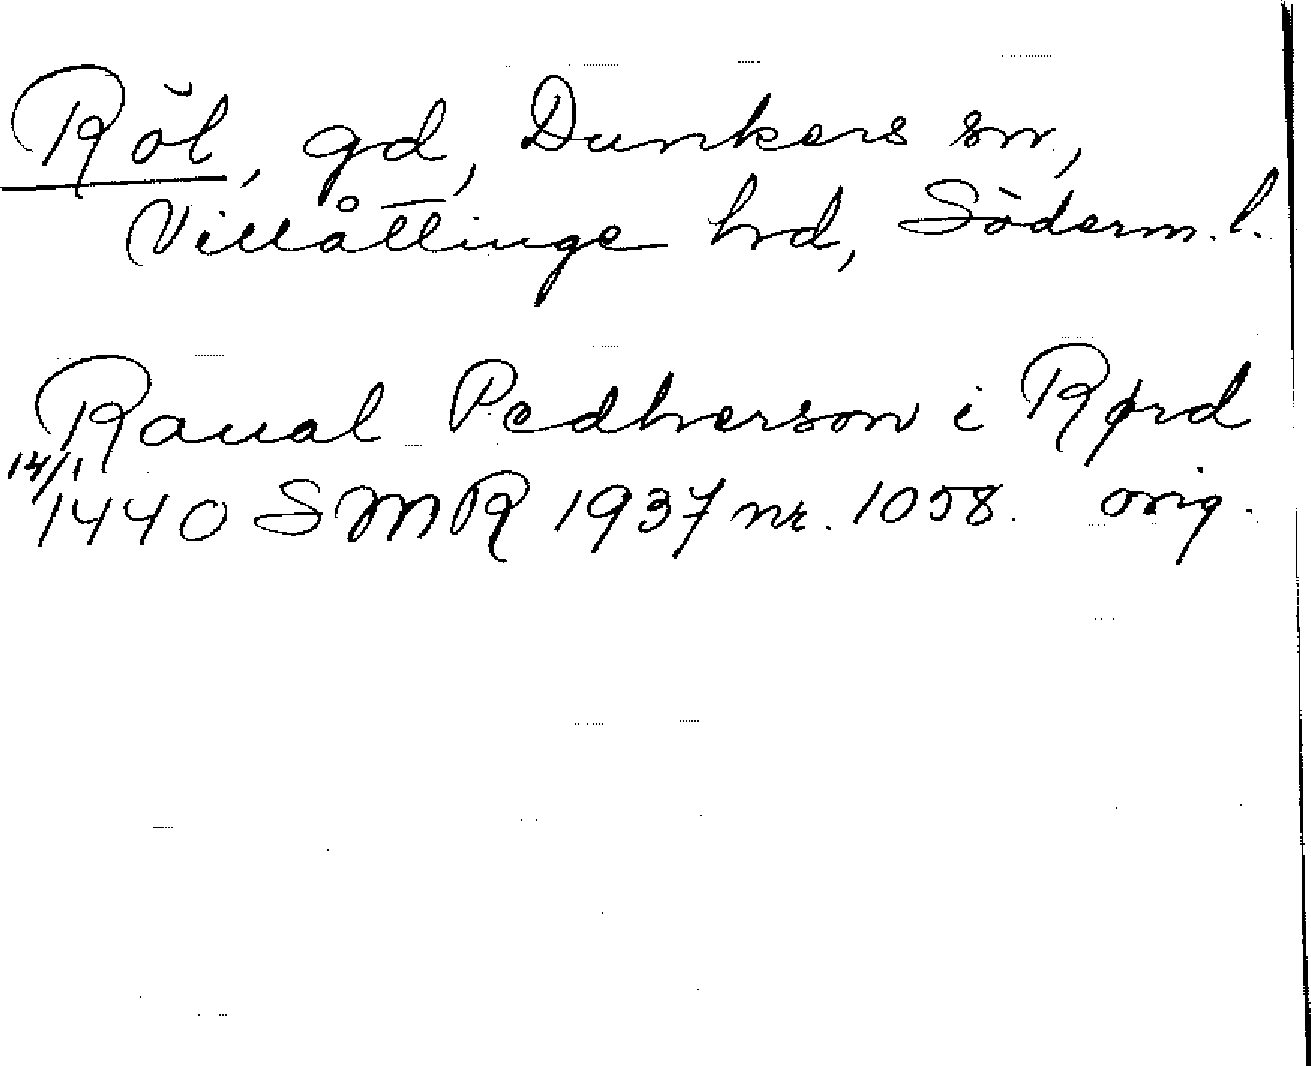 Röl, gd, Dunkers sn,
Villåttinge hd, Söderm. l.
Raual Pedherson i Rørd
14/1
1440 SMR 1937 nr. 1058. orig.